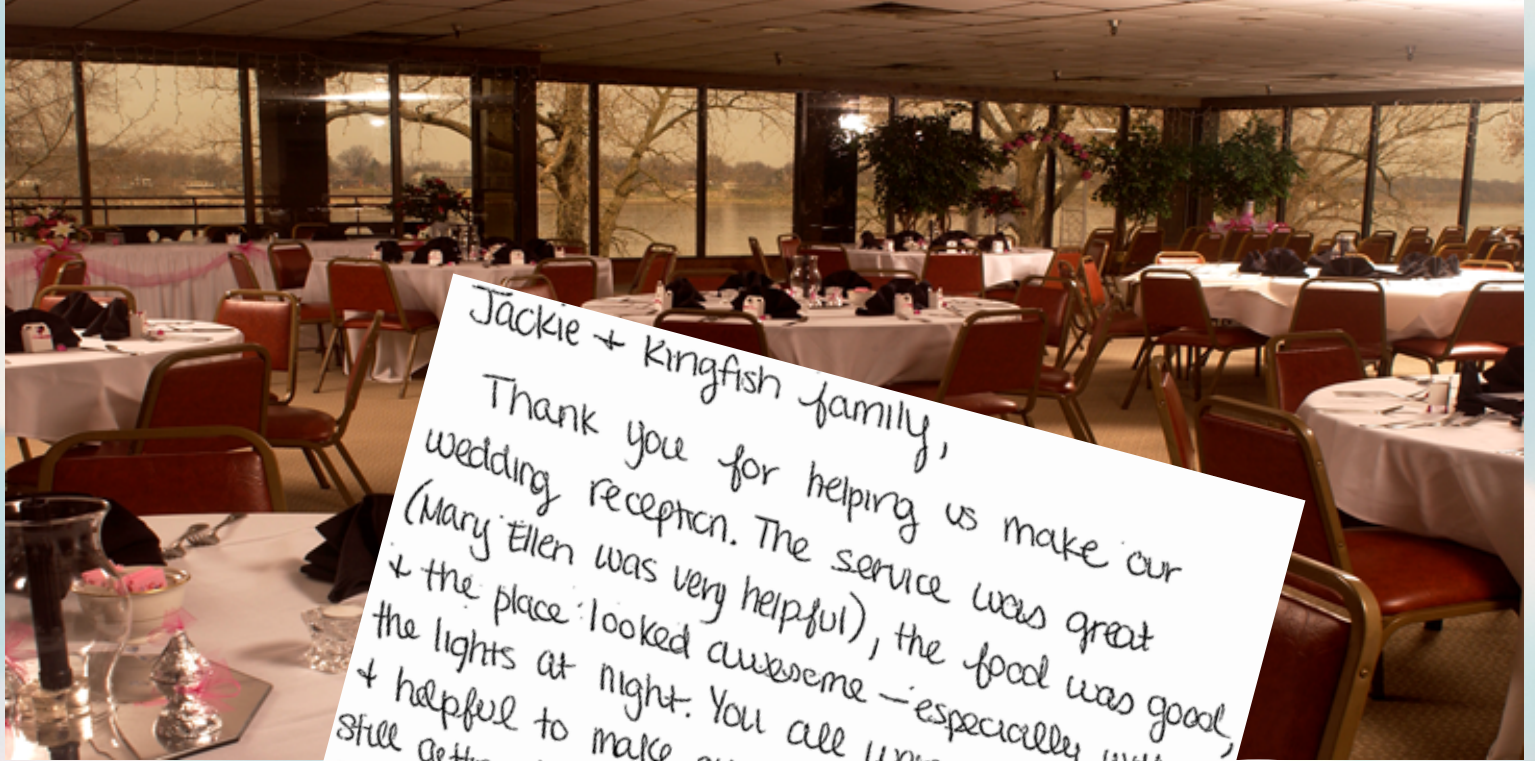 Jackie + Kingfish family,
Thank you for helping us make our
wedding reception. The service was great
(Mary Ellen was very helpful), the food was good,
+ the place looked awesome – especially with
the lights at night. You all were
+ helpful to make
still